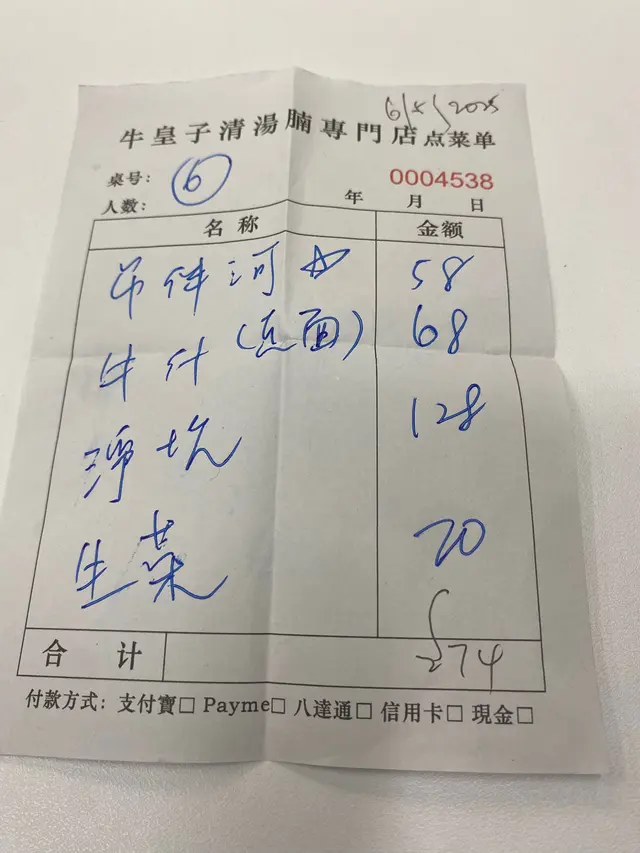 6/5/2025
牛皇子清湯腩專門店点菜单
桌号: 6
0004538
人数: 年 月 日
名称 金额
河 58
牛什 (底面) 68
淨坑 128
生菜 20
合计 $274
付款方式: 支付寶□ Payme□ 八達通□ 信用卡□ 現金□